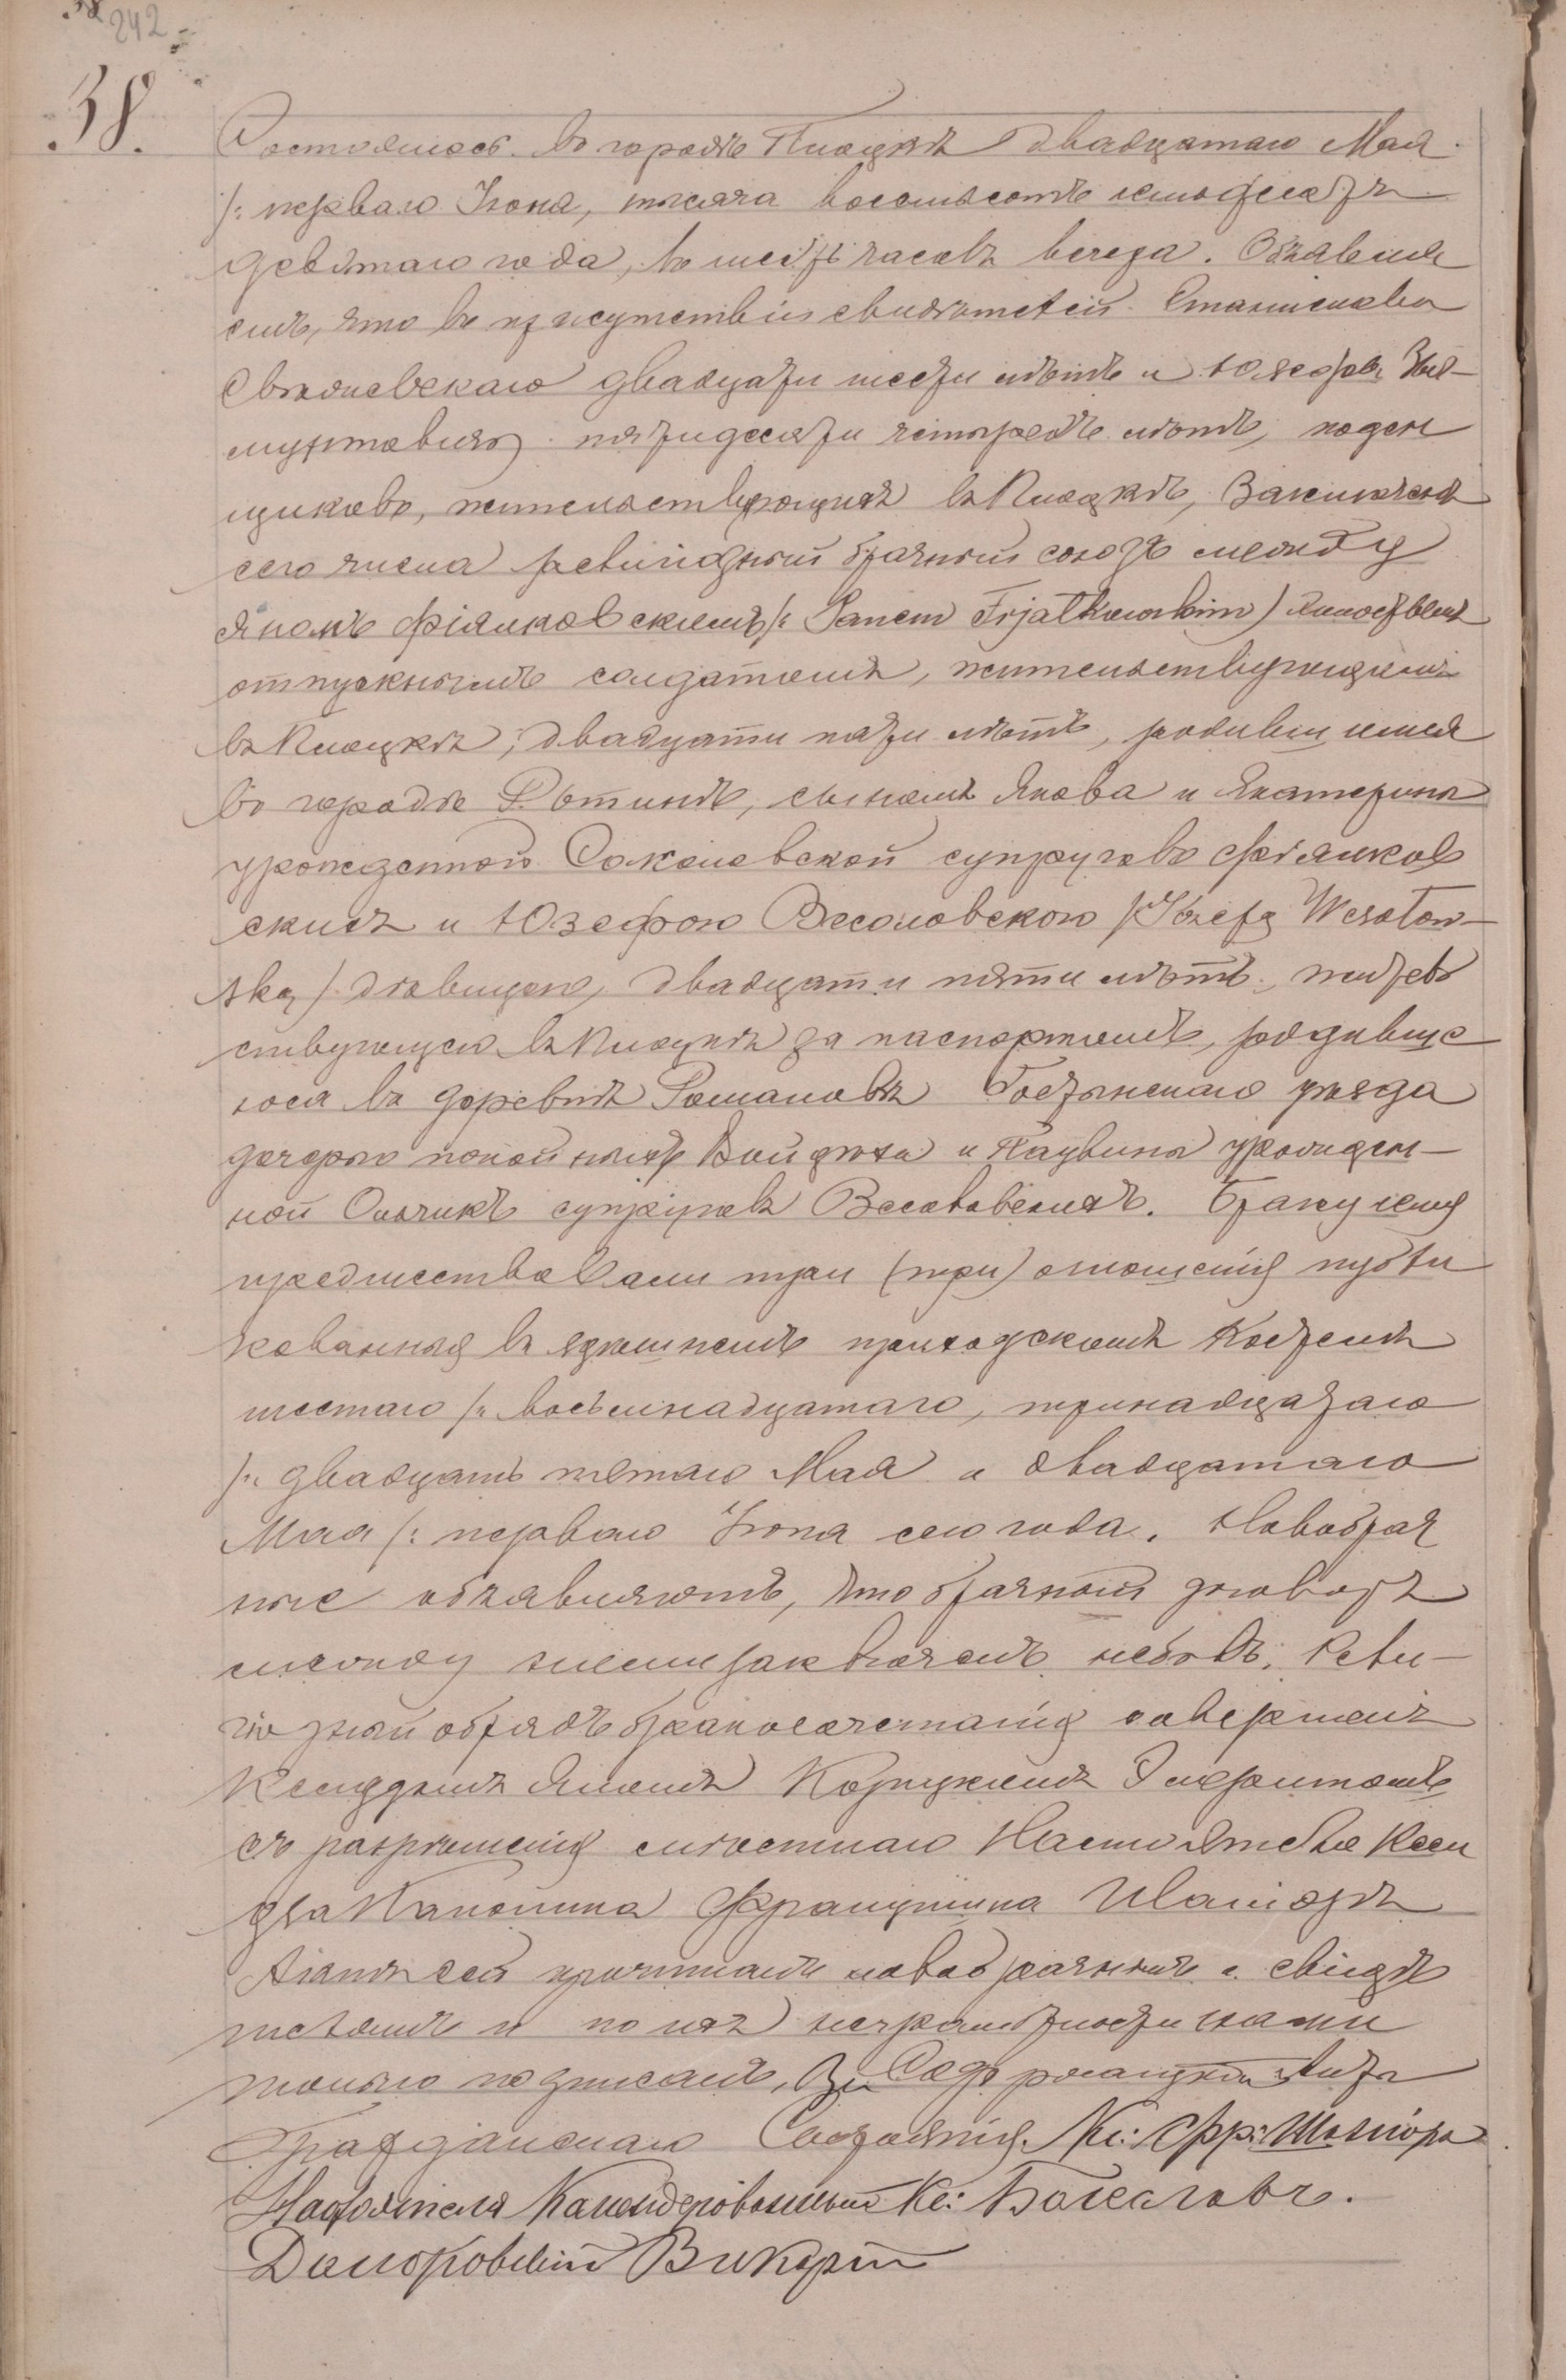 242
38.
Состоялось въ городѣ Плоцкѣ двадцатаго Мая
/: перваго Iюня, тысяча восемьсотъ семьдесятъ
девятаго года, въ шесть часовъ вечера. Объявля
емъ, что въ присутствіи свидѣтелей Станислава
двадцати шести лѣтъ и Юзефа
пятидесяти четырехъ лѣтъ, поден
щиковъ, жительствующихъ въ Плоцкѣ, Заключенъ
сего числа религіозный брачный союзъ между
Яномъ Фіялковскимъ /: Janem Fijałkowskim)
отпускнымъ солдатомъ, жительствующимъ
въ Плоцкѣ, двадцати пяти лѣтъ, родившимся
въ городѣ сыномъ Якова и Екатерины
урожденной Соколовской супруговъ Фіялков
скихъ и Юзефою Весоловскою /: Józefą Wesołow-
ską / дѣвицею, двадцати пяти лѣтъ, житель
ствующею въ Плоцкѣ за паспортомъ, родивше
юся въ деревнѣ Романовѣ Гостынскаго уѣзда
дочерью покойныхъ Войцѣха и урожден-
ной супруговъ Весоловскихъ. Браку сему
предшествовали три (три) оглашенія публи
кованныя въ здѣшнемъ приходскомъ Костелѣ
шестаго /: восьмнадцатаго, тринадцатаго
/: двадцать пятаго Мая и двадцатаго
Мая /: перваго Iюня сего года. Новобрач
ные объявляютъ, что брачный договоръ
между ними заключенъ небылъ. Рели-
гіозный обрядъ бракосочетанія совершенъ
Ксендзомъ Яномъ Эмеритомъ
съ разрѣшенія мѣстнаго Настоятеля Ксен
дза Каноника Францишка
Актъ сей прочитанъ новобрачнымъ и свидѣ
телямъ и по ихъ неграмотности нами
только подписанъ, За Содержащій Акты
Гражданскаго Состоянія Кс: Фр:
Настоятеля Кс: Болеславъ
Домбровскій Викарій